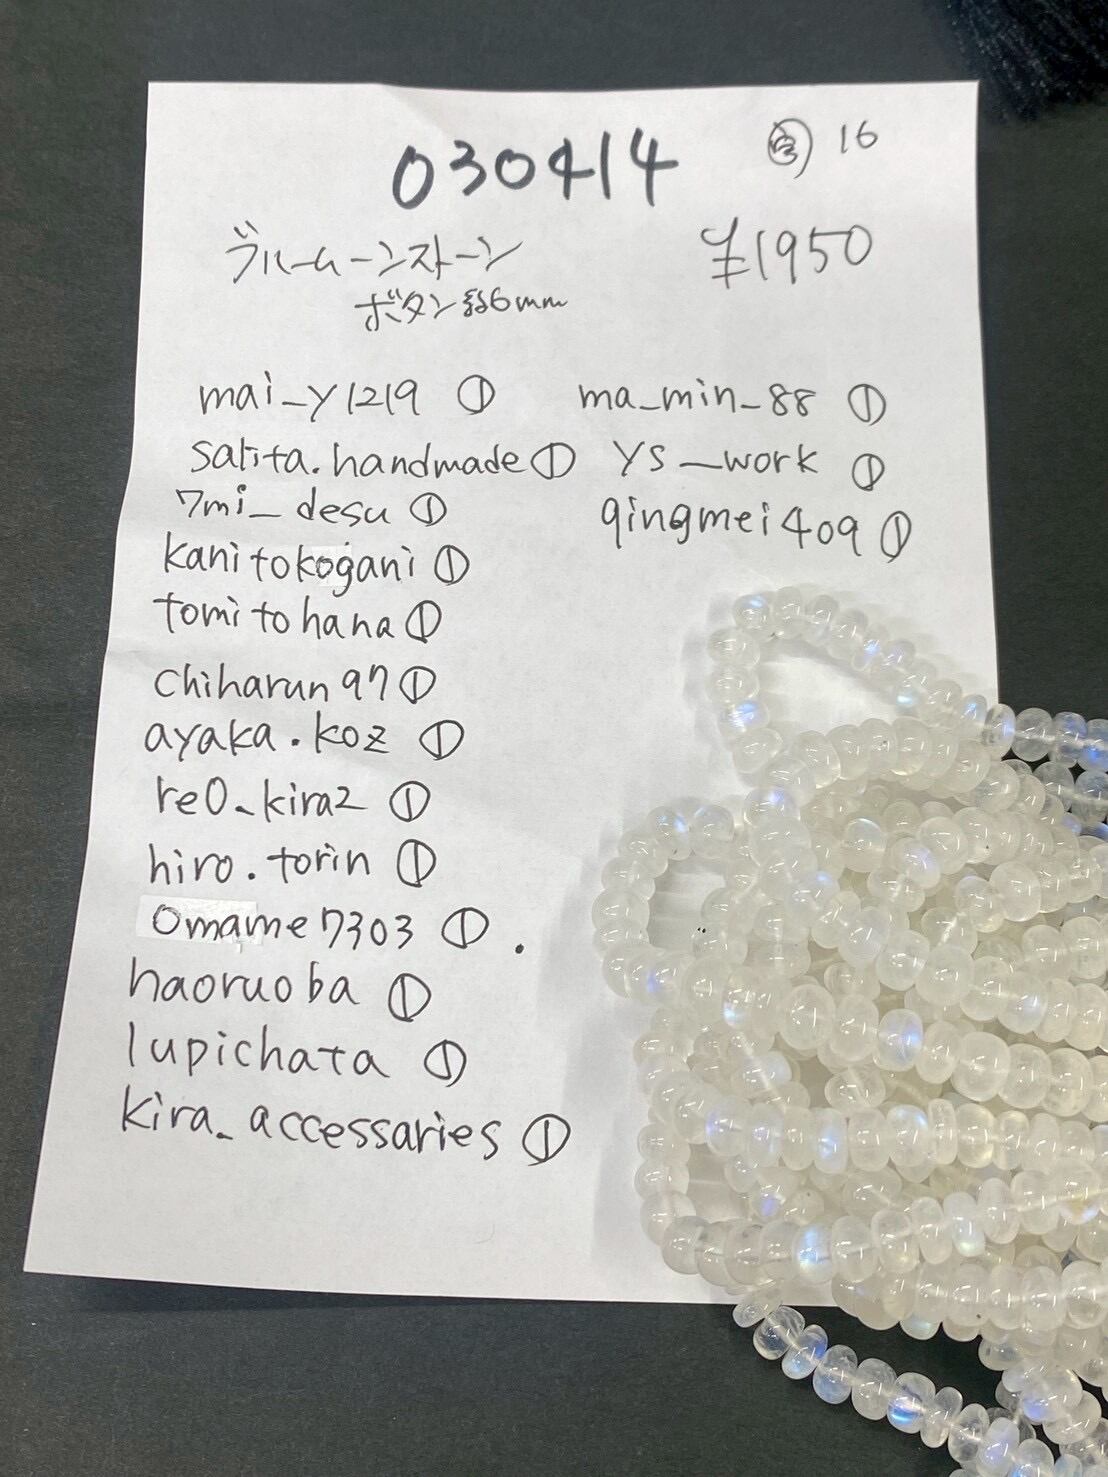 030414
16
ブルームーンストーン
¥1950
ボタン 約6mm
mai_y1219 ①
salita.handmade ①
7mi_desu ①
kanitokogani ①
tomitohana ①
chiharun97 ①
ayaka.koz ①
re0_kira2 ①
hiro.torin ①
omame7303 ①
haoruoba ①
lupichata ①
kira_accessaries ①
ma_min_88 ①
ys_work ①
qingmei409 ①